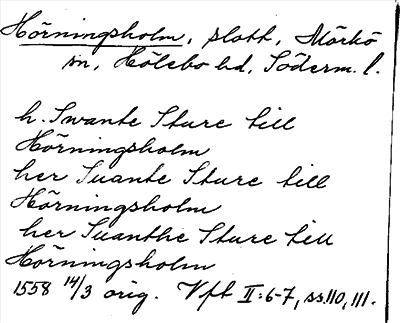 Hörningsholm, slott, Mörkö
sn, Hölebo hd, Söderm. l.
h. Swante Sture till
Hörningsholm
her Suante Sture till
Hörningsholm
her Suanthe Sture till
Hörningsholm
1558 14/3 orig. Vft II:6-7, ss.110, 111.